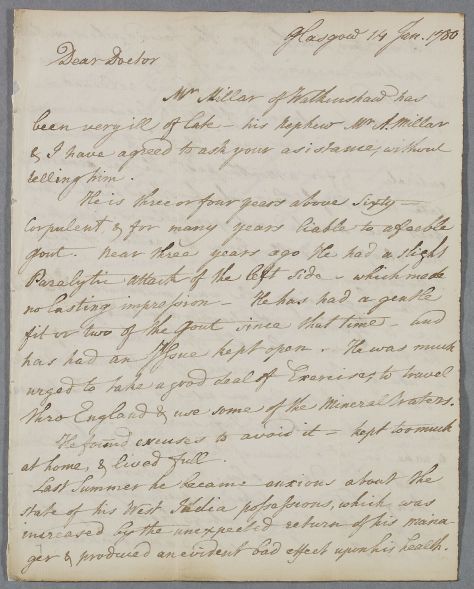 Glasgow 14 Jan. 1780
Dear Doctor
Mr Millar of Walkinshaw has
been very ill of late – his Nephew Mr A. Millar
& I have agreed to ask your asistance, without
telling him.
He is three or four years above Sixty –
Corpulent & for many years liable to a feeble
gout. Near three years ago He had a slight
Paralytic attack of the left side – which made
no lasting impression – He has had a gentle
fit or two of the Gout since that time – and
has had an Issue kept open. He was much
urged to take a good deal of Exercise, to travel
thro England & use some of the Mineral Waters.
He found excuses to avoid it – kept too much
at home, & lived full.
Last Summer he became anxious about the
state of his West India possessions, which was
increased by the unexpected return of his mana-
ger & produced an evident bad effect upon his health.